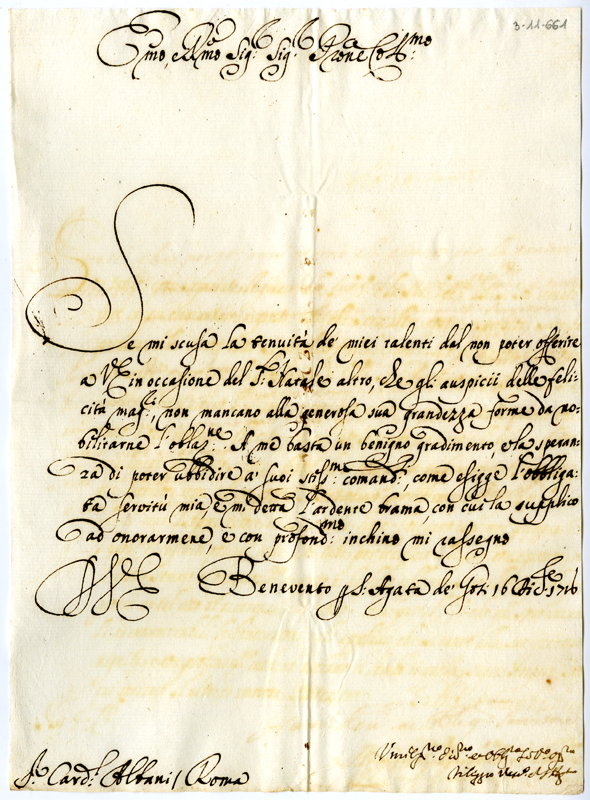 3-11-661
Emo, e Rmo Sig.r Sig.r Prone Colmo
Se mi scusa la tenuità de' miei talenti dal non poter offerire
a VE in occasione del S.to Natale altro, che gli auspicii delle feli-
cità mag.ri, non mancano alla generosa sua grandezza forme da no-
bilitarne l'oblaz.ne. A me basta un benigno gradimento, e la speran-
za di poter ubbidire a' suoi stiss.mi comandi, come esigge l'obbliga-
ta servitù mia, e mi detta l'ardente brama, con cui la supplico
ad onorarmene, e con profond.mo inchino mi rassegno
VE Benevento p S. Agata de' Goti 16 Dic.e 1716
S.r Card.l Albani / Roma
Filippo